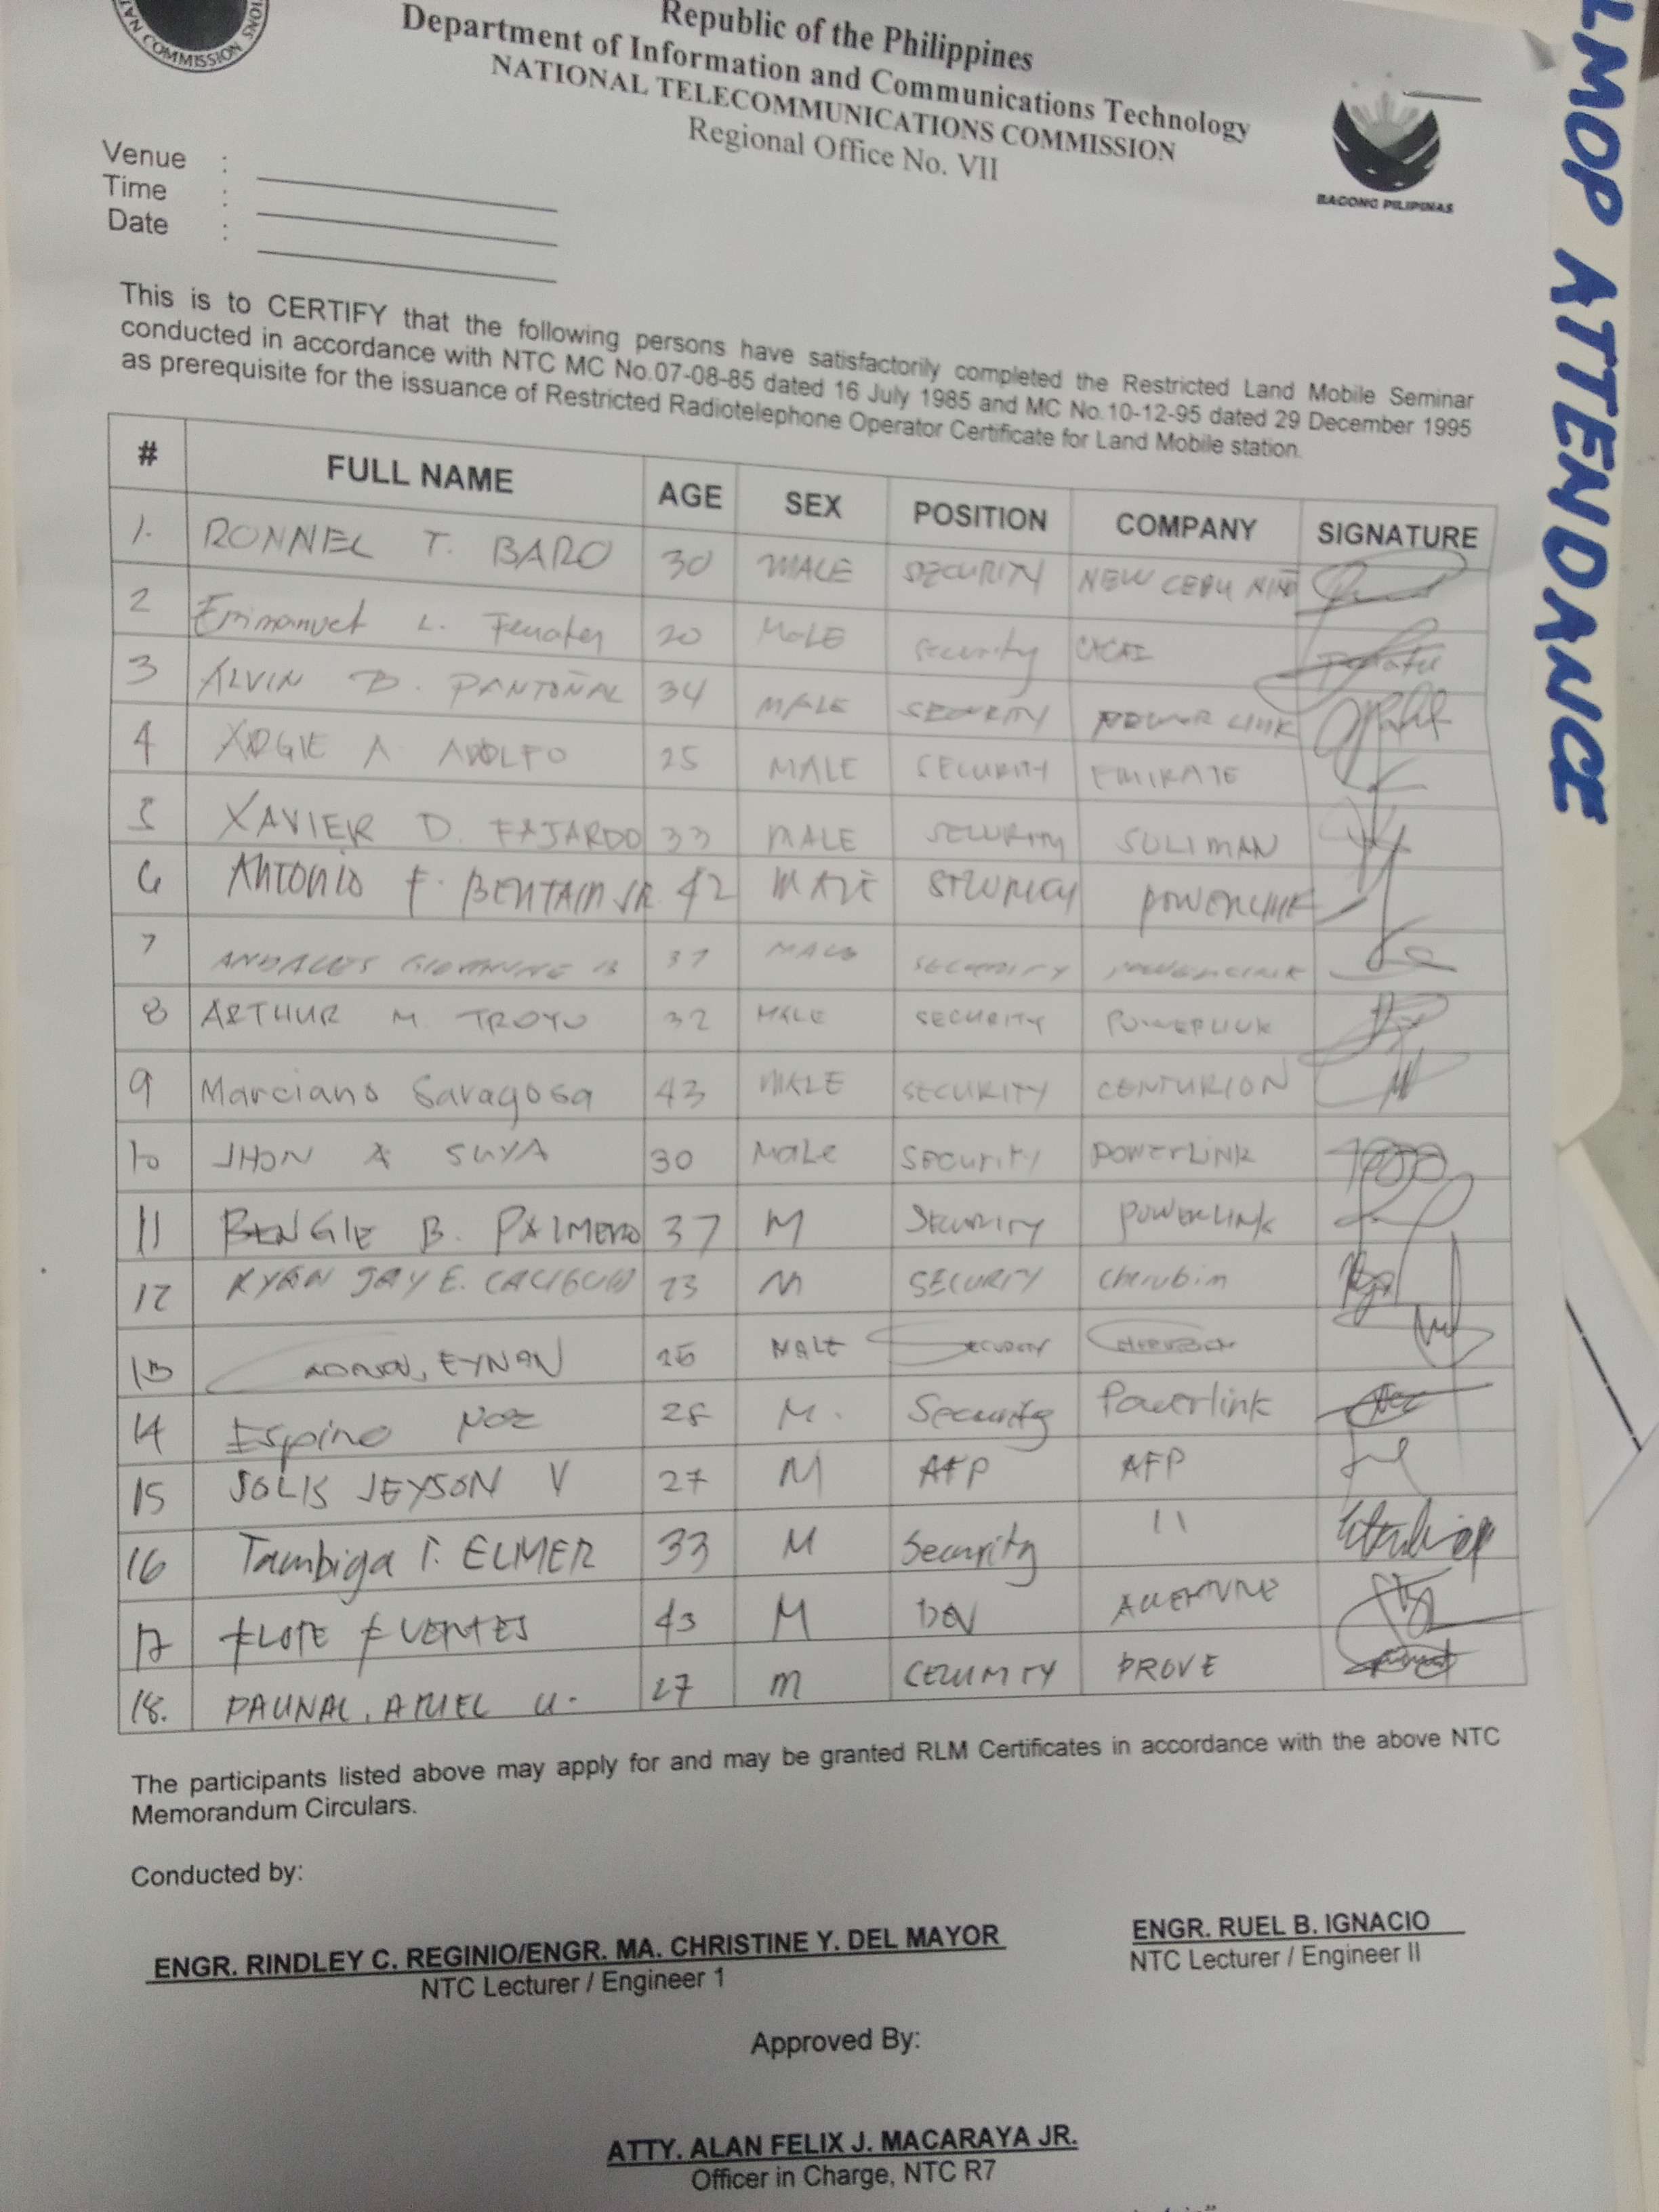 NAT COMMISSION
Republic of the Philippines
Department of Information and Communications Technology
NATIONAL TELECOMMUNICATIONS COMMISSION
Regional Office No. VII
BAGONG PILIPINAS
LMOP ATTENDANCE
Venue :
Time :
Date :
This is to CERTIFY that the following persons have satisfactorily completed the Restricted Land Mobile Seminar
conducted in accordance with NTC MC No.07-08-85 dated 16 July 1985 and MC No.10-12-95 dated 29 December 1995
as prerequisite for the issuance of Restricted Radiotelephone Operator Certificate for Land Mobile station.
# FULL NAME AGE SEX POSITION COMPANY SIGNATURE
1. RONNEL T. BARO 30 MALE SECURITY NEW CEBU
2 Emmanuel L. 20 MALE Security
3 ALVIN D. PANTOÑAL 34 MALE SECURITY POWER LINK
4 A ADOLFO 25 MALE SECURITY EMIRATE
5 XAVIER D. FAJARDO 33 MALE SECURITY SULIMAN
6 Antonio F. BENTAIN JR. 42 MALE POWERLINK
7 37 MALE SECURITY POWERLINK
8 ARTHUR M TROYO 32 MALE SECURITY POWERLINK
9 Marciano Saragosa 43 MALE SECURITY CENTURION
10 JHON A SUYA 30 MALE SECURITY POWERLINK
11 BENGIE B. PALMERO 37 M SECURITY POWERLINK
12 RYAN JAY E. 23 M SECURITY Cherubim
13 EYNAN MALE SECURITY
14 Espino 28 M. Security Powerlink
15 SOLIS JEYSON V 27 M AFP AFP
16 Tambiga T. ELMER 33 M Security 11
17 FLOTE FUENTES 43 M
18. PAUNAL, ARIEL U. 27 M PROVE
The participants listed above may apply for and may be granted RLM Certificates in accordance with the above NTC
Memorandum Circulars.
Conducted by:
ENGR. RINDLEY C. REGINIO/ENGR. MA. CHRISTINE Y. DEL MAYOR
NTC Lecturer / Engineer 1
ENGR. RUEL B. IGNACIO
NTC Lecturer / Engineer II
Approved By:
ATTY. ALAN FELIX J. MACARAYA JR.
Officer in Charge, NTC R7